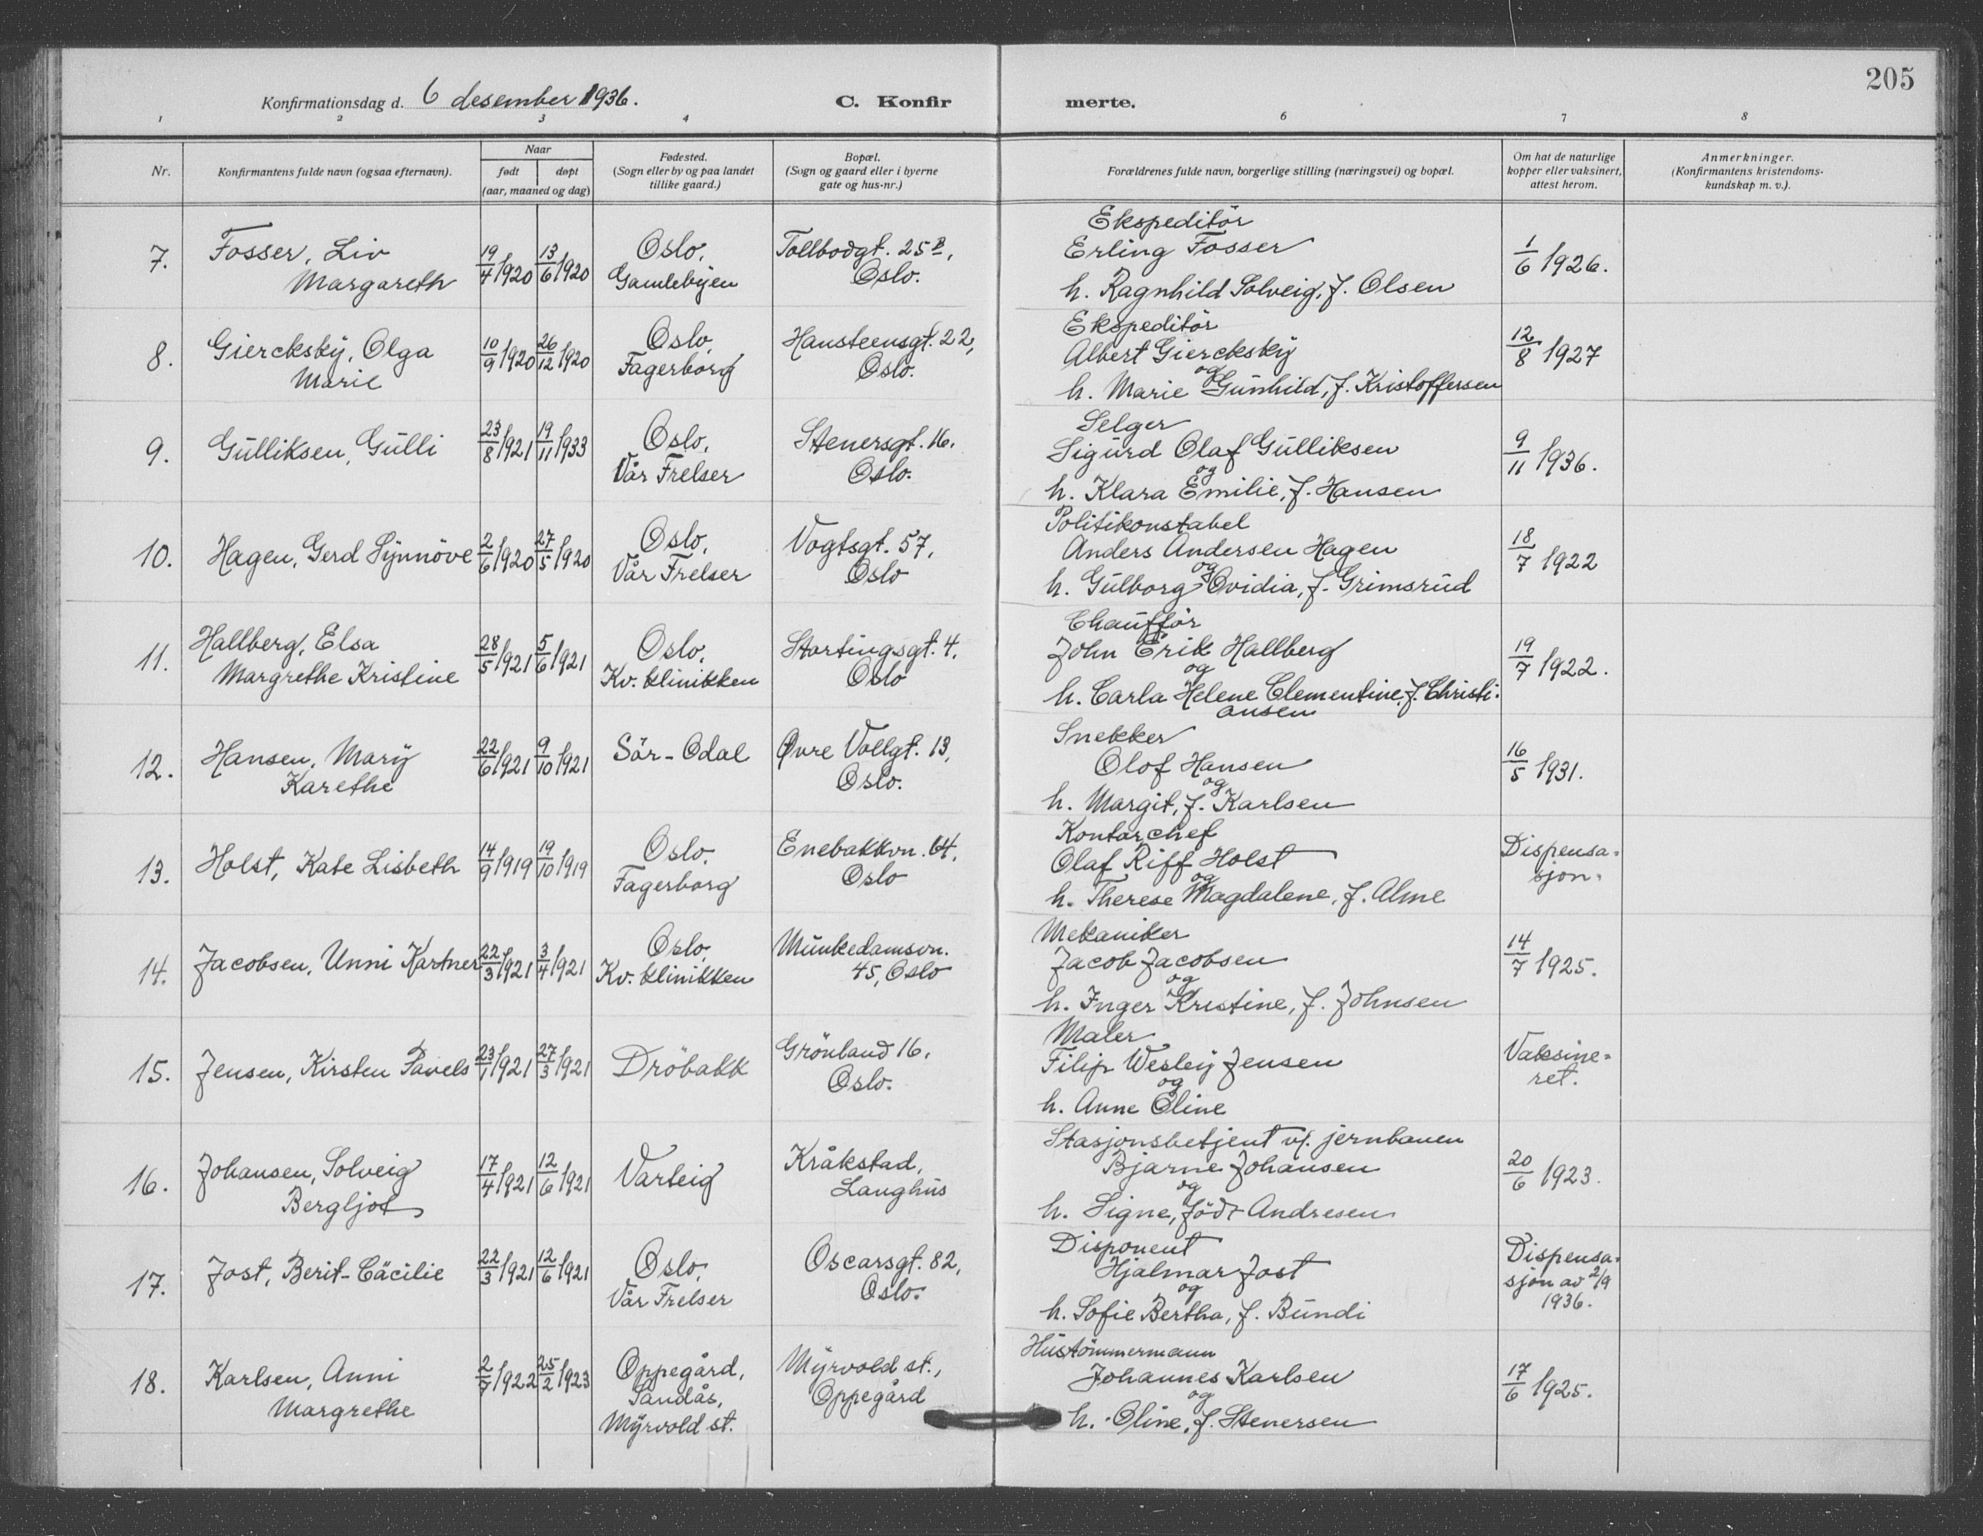 205
Konfirmationsdag d. 6 desember 1936.
C. Konfir merte.
1 2 3 4 6 7 8
Nr.
Konfirmantens fulde navn (ogsaa efternavn).
Naar
født døpt
(aar, maaned og dag)
Fødested.
(Sogn eller by og paa landet
tillike gaard.)
Bopæl.
(Sogn og gaard eller i byerne
gate og hus-nr.)
Forældrenes fulde navn, borgerlige stilling (næringsvei) og bopæl.
Om hat de naturlige
kopper eller vaksinert,
attest herom.
Anmerkninger.
(Konfirmantens kristendoms-
kundskap m. v.).
7. Fosser, Liv
Margareth
19/4 1920 13/6 1920
Oslo,
Gamlebyen
Tollbodgt. 25B,
Oslo.
Ekspeditör
Erling Fosser
h. Ragnhild Solveig, f. Olsen
1/6 1926.
8. Giercksky, Olga
Marie
10/9 1920 26/12 1920
Oslo,
Fagerborg
Hansteensgt. 22,
Oslo.
Ekspeditör
Albert Giercksky
og
h. Marie Gunhild, f. Kristoffersen
12/8 1927
9. Gulliksen, Gulli
23/8 1921 19/11 1933
Oslo,
Vår Frelser
Stenersgt. 16.
Oslo.
Selger
Sigurd Olaf Gulliksen
og
h. Klara Emilie, f. Hansen
9/11 1936.
10. Hagen, Gerd Synnöve
2/6 1920 27/5 1920
Oslo,
Vår Frelser
Vogtsgt. 57,
Oslo
Politikonstabel
Anders Andersen Hagen
og
h. Gulborg Ovidia, f. Grimsrud
18/7 1922
11. Hallberg, Elsa
Margrethe Kristine
28/5 1921 5/6 1921
Oslo,
Kv. klinikken
Stortingsgt. 4,
Oslo
Chauffør
John Erik Hallberg
og
h. Carla Helene Clementine, f. Christi-
ansen
19/7 1922.
12. Hansen, Mary
Karethe
22/6 1921 9/10 1921
Sör-Odal
Øvre Vollgt. 13,
Oslo.
Snekker
Olof Hansen
og
h. Margit, f. Karlsen
16/5 1931.
13. Holst, Kate Lisbeth
14/9 1919 19/10 1919
Oslo,
Fagerborg
Enebakkvn. 64,
Oslo
Kontorchef
Olaf Riff Holst
og
h. Therese Magdalene, f. Alme
Dispensa-
sjon.
14. Jacobsen, Unni Kartner
22/3 1921 3/4 1921
Oslo,
Kv. klinikken
Munkedamsvn.
45, Oslo
Mekaniker
Jacob Jacobsen
og
h. Inger Kristine, f. Johnsen
14/7 1925.
15. Jensen, Kirsten Pavels
23/1 1921 27/3 1921
Dröbakk
Grönland 16,
Oslo.
Maler
Filip Wesley Jensen
og
h. Anne Oline
Vaksine-
ret.
16. Johansen, Solveig
Bergljot
17/4 1921 12/6 1921
Varteig
Kråkstad,
Langhus
Stasjonsbetjent v/. jernbanen
Bjarne Johansen
og
h. Signe, födt Andresen
20/6 1923.
17. Jost, Berit-Cäcilie
22/3 1921 12/6 1921
Oslo,
Vår Frelser
Oscarsgt. 82,
Oslo.
Disponent
Hjalmar Jost
og
h. Sofie Bertha, f. Bundi
Dispensa-
sjon av 2/9
1936.
18. Karlsen, Anni
Margrethe
2/7 1922 25/2 1923
Oppegård,
Sandås,
Myrvold st.
Myrvold st.,
Oppegård
Hustömmermann
Johannes Karlsen
og
h. Oline, f. Stenersen
17/6 1925.